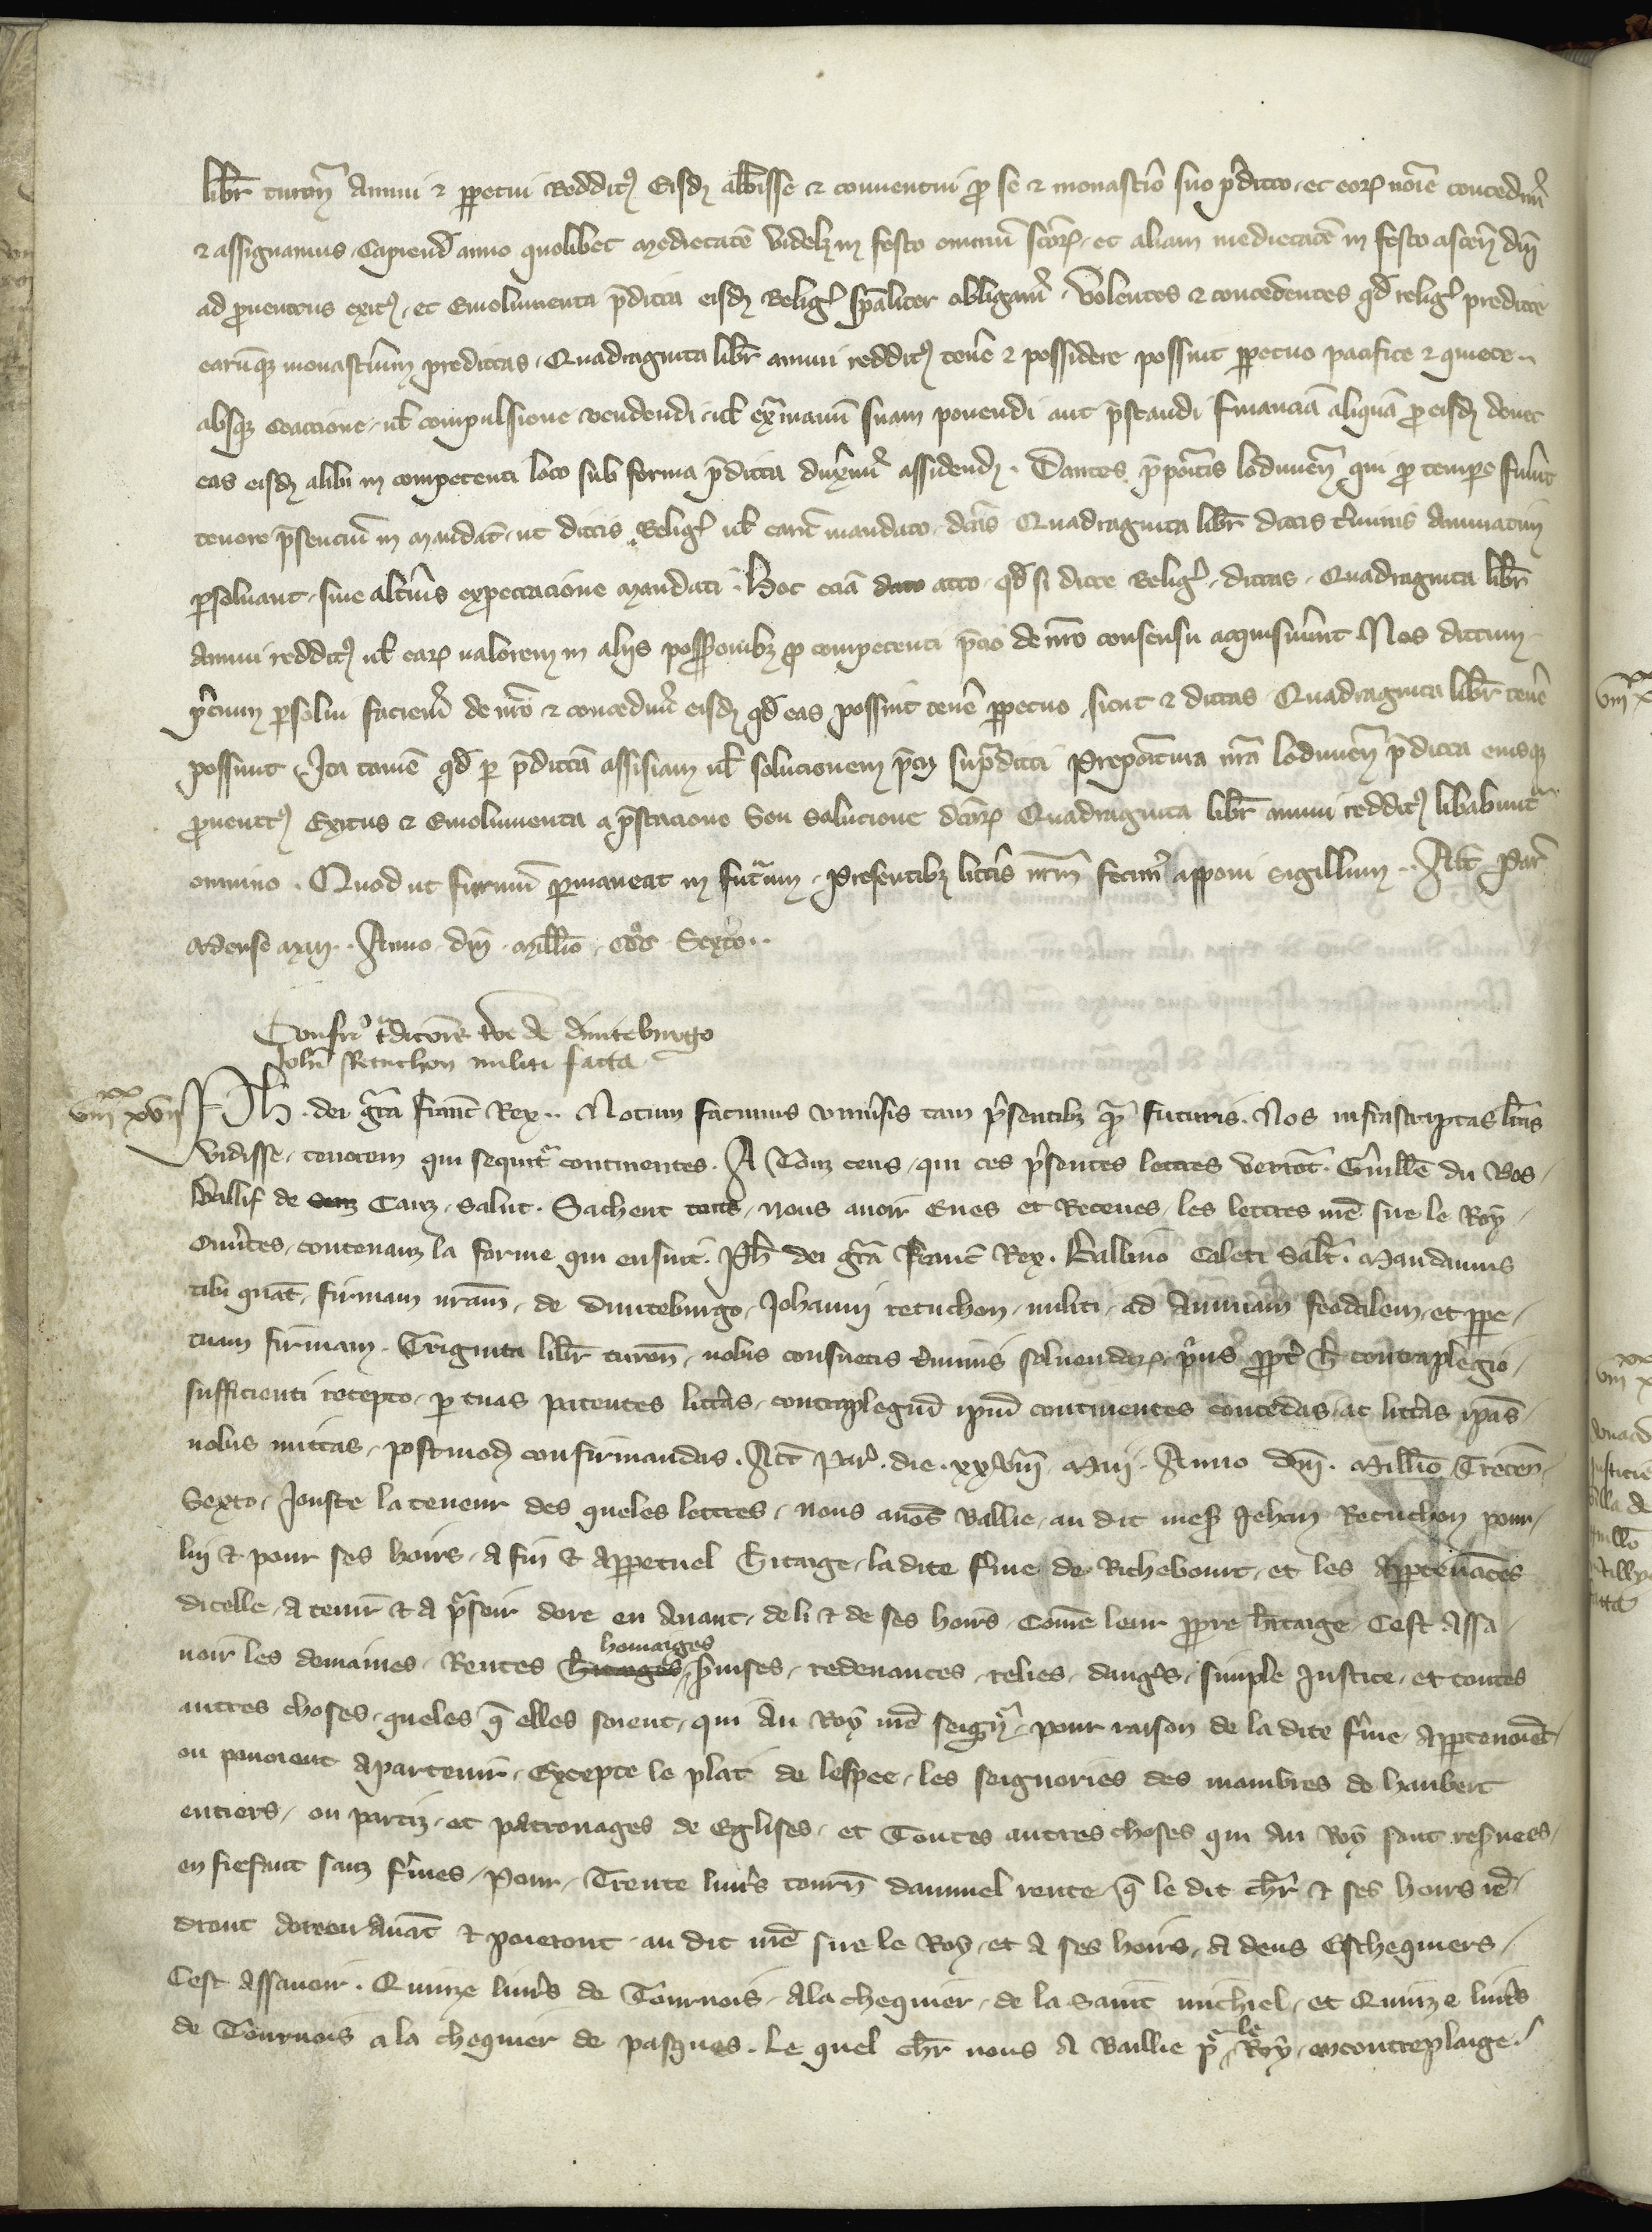 libr̄ turoñ Annui ⁊ ꝑpetui Redditꝰ Eisdē abb̄isse ⁊ conuentui ꝓ se ⁊ monast̄io suo p̄dicto, et eoꝝ noīe concedim̄
⁊ assignamus, Capiend̄ anno quolibet Medietatē videlꝫ in festo omniū sc̄oꝝ, et aliam medietatē in festo ascen̄ dn̄i
ad ꝓuentus exitꝰ, et Emolumenta p̄dicta eisdē Reliḡ sp̄aliter obligam̄. Volentes ⁊ concedentes qd̄ reliḡ predicte
earūqꝫ monast̄ium predictas, Quadraginta libr̄ annui redditꝰ ten̄e ⁊ possidere possint ꝑpetuo pacifice ⁊ quiete..
absqꝫ coaccione, ul̄ compulsione vendendi, ul̄ ex̄ manū suam ponendi aut p̄standi financiā aliquā ꝓ eisdē donec
eas eisdē alibi in competenti loco sub forma p̄dicta duxim̄ assidendꝫ. Dantes p̄poītis loduuen̄ qui ꝓ tempe fūint
tenore p̄senciū in Mandat̄, ut dictis Reliḡ ul̄ eaꝝ mandato, dc̄as Quadraginta libr̄ dictis t̄minis Annuatim
ꝑsoluant, sine alt̄ius expectacione Mandati. Hoc eciā dato acto, qd̄ si dicte Reliḡ, dictas, Quadraginta libr̄
Annui redditꝰ ul̄ eaꝝ ualorem in aliis possessionibꝫ ꝓ competenti p̄cio de nr̄o consensu acquisiuīnt Nos dictum
p̄cium ꝑsolui faciem̄ de nr̄o ⁊ concedim̄ eisdē qd̄ eas possint ten̄e ꝑpetuo, sicut ⁊ dictas Quadraginta libr̄ ten̄e
possunt, Ita tamē qd̄ ꝑ p̄dictā assisiam ul̄ solucionem p̄cii sup̄dicti Prepoītura nr̄a loduuen̄ p̄dicta eiusqꝫ
ꝓuentꝰ Exitus ⁊ Emolumenta a p̄stacione Seu Solucione dc̄aꝝ Quadraginta libr̄ annui redditꝰ lib̄abunt̄
omnino. Quod ut firmū ꝑmaneat in fut̄um, Presentibꝫ litt̄is nr̄m fecim̄ apponi sigillum.. Act̄ Par̄
Mense Maii. Anno dn̄i Mill̄o CCC̊ Sexto..
Confir̄ t̄dicōis fc̄e de diuiteburgo
Joh̄i Retuchon militi facta.
viii xx xvii Ph̄. dei gr̄a franc̄ Rex.. Notum facimus vniūsis tam p̄sentibꝫ qm̄ futuris. Nos infrascriptas litt̄as
vidisse, tenorem qui sequit̄ continentes. A Touz ceus, qui ces p̄sentes lettres verrōt. Guill̄e du Bos,
Baillif de Caux, salut. Sachent touts, nous auoir Eues et Receues, les lettres mē sire le Roy,
Ouūtes, contenanz la forme qui ensuit. Ph̄ dei gr̄a Franc̄ Rex. Balliuo Caleti Sal̄t. Mandamus
tibi qn̄at, firmam nr̄am, de diuiteburgo, Johanni retuchon, militi, ad Annuam feodalem, et ꝑpe,
tuam firmam, Triginta libr̄ turon̄, nobis consuetis t̄minis soluendaꝝ, prius ꝓpt̄ h̄ contraplegio,
sufficienti recepto, ꝑ tuas patentes litt̄as, contraplegiū ipm̄ continentes concedas, ac litt̄as ipās
nobis mittas, postmodū confirmandas. Act̄ Par̄. die. xxviii. Maii. Anno dn̄i. Mill̄o Trecen̄,
Sexto, Jouste la teneur des queles lettres, nous auōs Baillie, au dit mess̄ Jehan Retuchon pour
lui ⁊ pour ses hoirs, A fin ⁊ Appetuel h̄itaige, la dite f̄me de Richebourt, et les Appten̄ances
dicelle, A tenir ⁊ A p̄seoir dore en Auant, de li ⁊ de ses hoirs, Comē leur ꝓpre h̄itaige, Cest Assa,
uoir les domaines, Rentes homaiges, s̄uises, redeuances, reliés, danḡs, simple Justice, et toutes
autres choses, queles q̄ elles soient, qui Au Roy mē seign̄r, pour raison de la dite f̄me, Apptenoiēt,
ou pouoient Apartenir, Excepte le plait de lespee, les seignories des membres de haubert
entiers, ou partiz, et patronages de Eglises, et Toutes autres choses qui Au Roy sont res̄uees,
en fiefant sanz f̄mes, Pour, Trente liur̄s tourn̄ dannuel rente, q̄ le dit ch̄r ⁊ ses hoirs rē,
dront doreen Auāt ⁊ paieront, au dit mē sire le Roy, et A ses hoirs, A deus Eschequiers,
Cest Assauoir. Quinze liur̄s de Tournois, A la chequier, de la Saint michiel, et Quinze liur̄s
de Tournois a la chequier de pasques. Le quel ch̄r nous A Baillie p̄ le Roy, en contreplaige